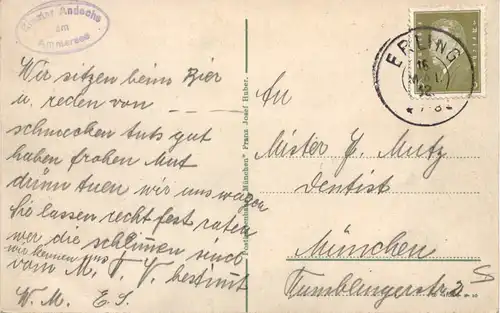 Kloster Andechs
am
Ammersee
Wir sitzen beim Bier
u. reden von _ _ _ _
schmecken tuts gut
haben frohen Mut
drünn tuen wir uns wagen
Sie lassen recht fest raten
wer die schlimen sind
wir kennen uns
vom M. T. V. bestimt
W. M. E. S.
Postkartenhaus "München" Franz Josef Huber.
ERLING
16
32
7-8
An
Mister H. Mutz
Dentist
München
Tumblingerstr. 2